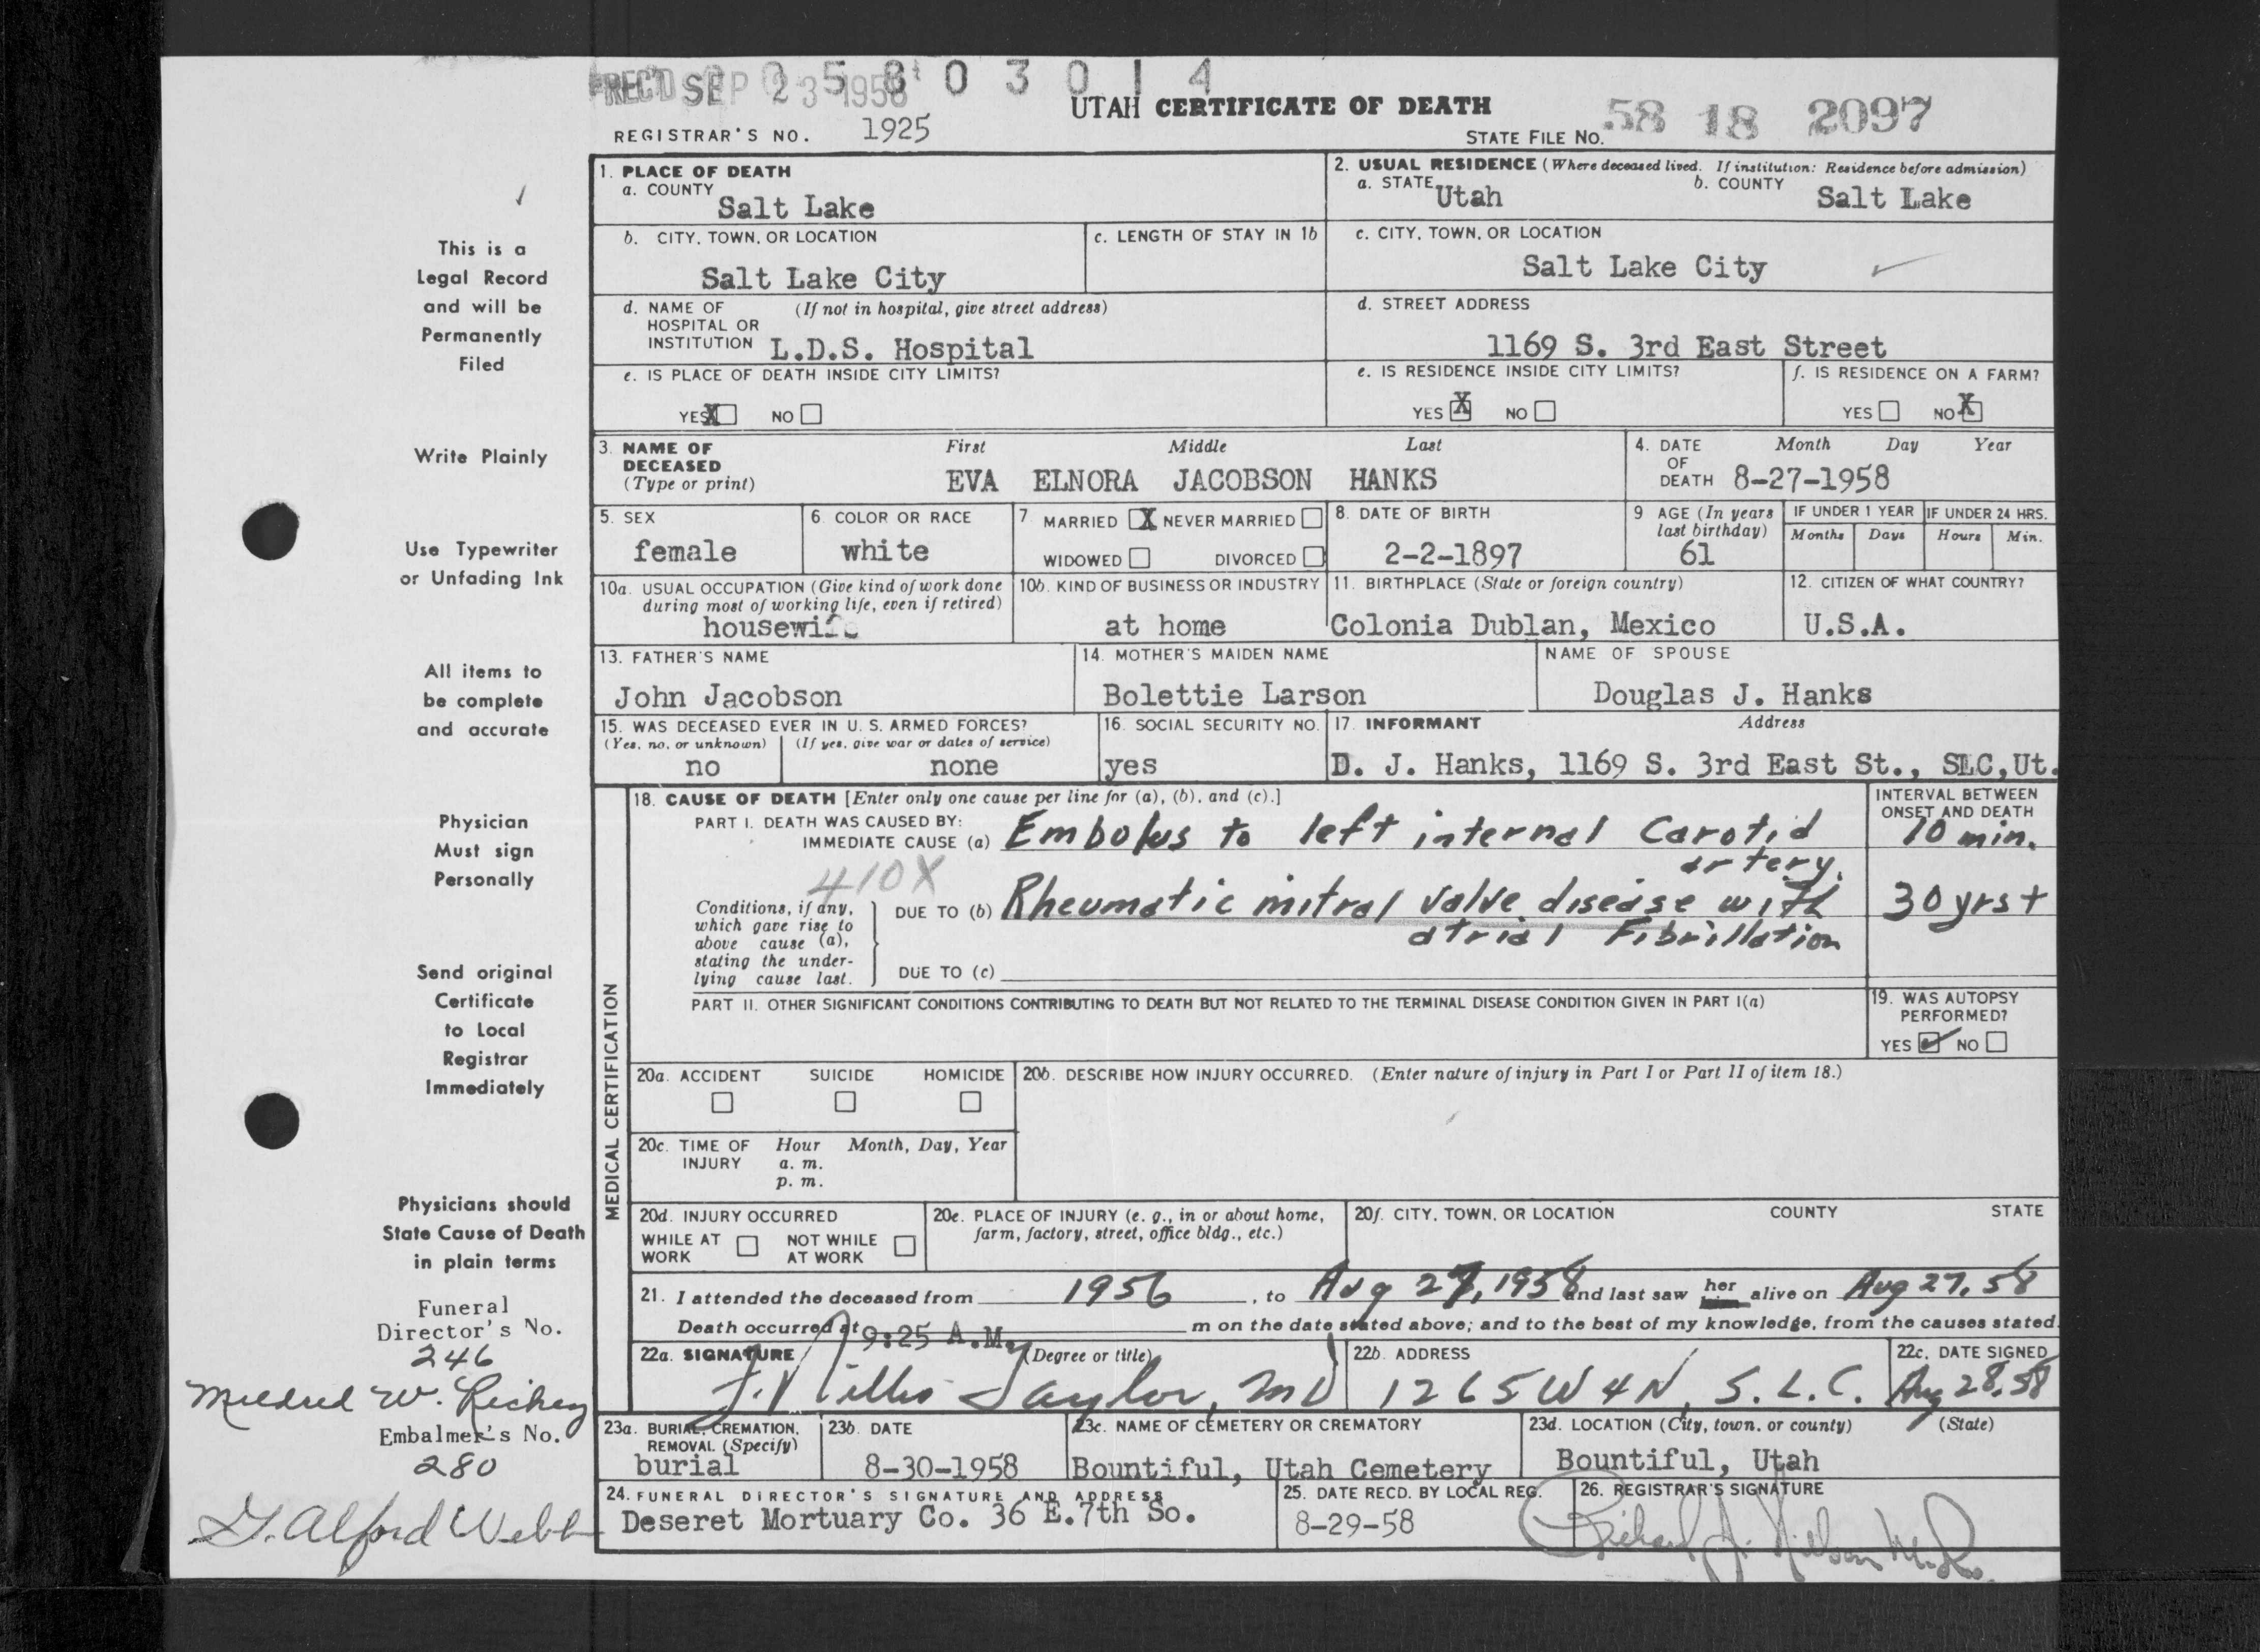 REC'D SEP 23 1958
0 0 5 8 0 3 0 1 4
UTAH CERTIFICATE OF DEATH
REGISTRAR'S NO. 1925
STATE FILE NO. 58 18 2097
1. PLACE OF DEATH
a. COUNTY
Salt Lake
2. USUAL RESIDENCE (Where deceased lived. If institution: Residence before admission)
a. STATE Utah b. COUNTY Salt Lake
b. CITY, TOWN, OR LOCATION
Salt Lake City
c. LENGTH OF STAY IN 1b
c. CITY, TOWN, OR LOCATION
Salt Lake City
d. NAME OF HOSPITAL OR INSTITUTION (If not in hospital, give street address)
L.D.S. Hospital
d. STREET ADDRESS
1169 S. 3rd East Street
e. IS PLACE OF DEATH INSIDE CITY LIMITS?
YES X NO
e. IS RESIDENCE INSIDE CITY LIMITS?
YES X NO
f. IS RESIDENCE ON A FARM?
YES NO X
3. NAME OF DECEASED (Type or print)
First Middle Last
EVA ELNORA JACOBSON HANKS
4. DATE OF DEATH Month Day Year
8-27-1958
5. SEX
female
6. COLOR OR RACE
white
7. MARRIED X NEVER MARRIED
WIDOWED DIVORCED
8. DATE OF BIRTH
2-2-1897
9 AGE (In years last birthday)
61
IF UNDER 1 YEAR
Months Days
IF UNDER 24 HRS.
Hours Min.
10a. USUAL OCCUPATION (Give kind of work done during most of working life, even if retired)
housewife
10b. KIND OF BUSINESS OR INDUSTRY
at home
11. BIRTHPLACE (State or foreign country)
Colonia Dublan, Mexico
12. CITIZEN OF WHAT COUNTRY?
U.S.A.
13. FATHER'S NAME
John Jacobson
14. MOTHER'S MAIDEN NAME
Bolettie Larson
NAME OF SPOUSE
Douglas J. Hanks
15. WAS DECEASED EVER IN U. S. ARMED FORCES?
(Yes, no, or unknown) (If yes, give war or dates of service)
no none
16. SOCIAL SECURITY NO.
yes
17. INFORMANT Address
D. J. Hanks, 1169 S. 3rd East St., SLC, Ut.
MEDICAL CERTIFICATION
18. CAUSE OF DEATH [Enter only one cause per line for (a), (b), and (c).]
INTERVAL BETWEEN ONSET AND DEATH
PART I. DEATH WAS CAUSED BY:
IMMEDIATE CAUSE (a) Embolus to left internal Carotid artery. 10 min.
410X
Conditions, if any, which gave rise to above cause (a), stating the underlying cause last.
DUE TO (b) Rheumatic mitral valve disease with atrial Fibrillation 30 yrs +
DUE TO (c)
PART II. OTHER SIGNIFICANT CONDITIONS CONTRIBUTING TO DEATH BUT NOT RELATED TO THE TERMINAL DISEASE CONDITION GIVEN IN PART I(a)
19. WAS AUTOPSY PERFORMED?
YES ✓ NO
20a. ACCIDENT SUICIDE HOMICIDE
20b. DESCRIBE HOW INJURY OCCURRED. (Enter nature of injury in Part I or Part II of item 18.)
20c. TIME OF INJURY Hour Month, Day, Year
a. m.
p. m.
20d. INJURY OCCURRED
WHILE AT WORK NOT WHILE AT WORK
20e. PLACE OF INJURY (e. g., in or about home, farm, factory, street, office bldg., etc.)
20f. CITY, TOWN, OR LOCATION COUNTY STATE
21. I attended the deceased from 1956, to Aug 27, 1958 and last saw her alive on Aug 27, 58
Death occurred at 9:25 A.M. m on the date stated above; and to the best of my knowledge, from the causes stated.
22a. SIGNATURE (Degree or title)
J. Willis Taylor, MD
22b. ADDRESS
1265 W 4 N, S.L.C.
22c. DATE SIGNED
Aug 28, 58
23a. BURIAL, CREMATION, REMOVAL (Specify)
burial
23b. DATE
8-30-1958
23c. NAME OF CEMETERY OR CREMATORY
Bountiful, Utah Cemetery
23d. LOCATION (City, town, or county) (State)
Bountiful, Utah
24. FUNERAL DIRECTOR'S SIGNATURE AND ADDRESS
Deseret Mortuary Co. 36 E. 7th So.
25. DATE RECD. BY LOCAL REG.
8-29-58
26. REGISTRAR'S SIGNATURE
Richard A. Nilson
This is a
Legal Record
and will be
Permanently
Filed
Write Plainly
Use Typewriter
or Unfading Ink
All items to
be complete
and accurate
Physician
Must sign
Personally
Send original
Certificate
to Local
Registrar
Immediately
Physicians should
State Cause of Death
in plain terms
Funeral
Director's No.
246
Mildred W. Richey
Embalmer's No.
280
G. Alford Webb